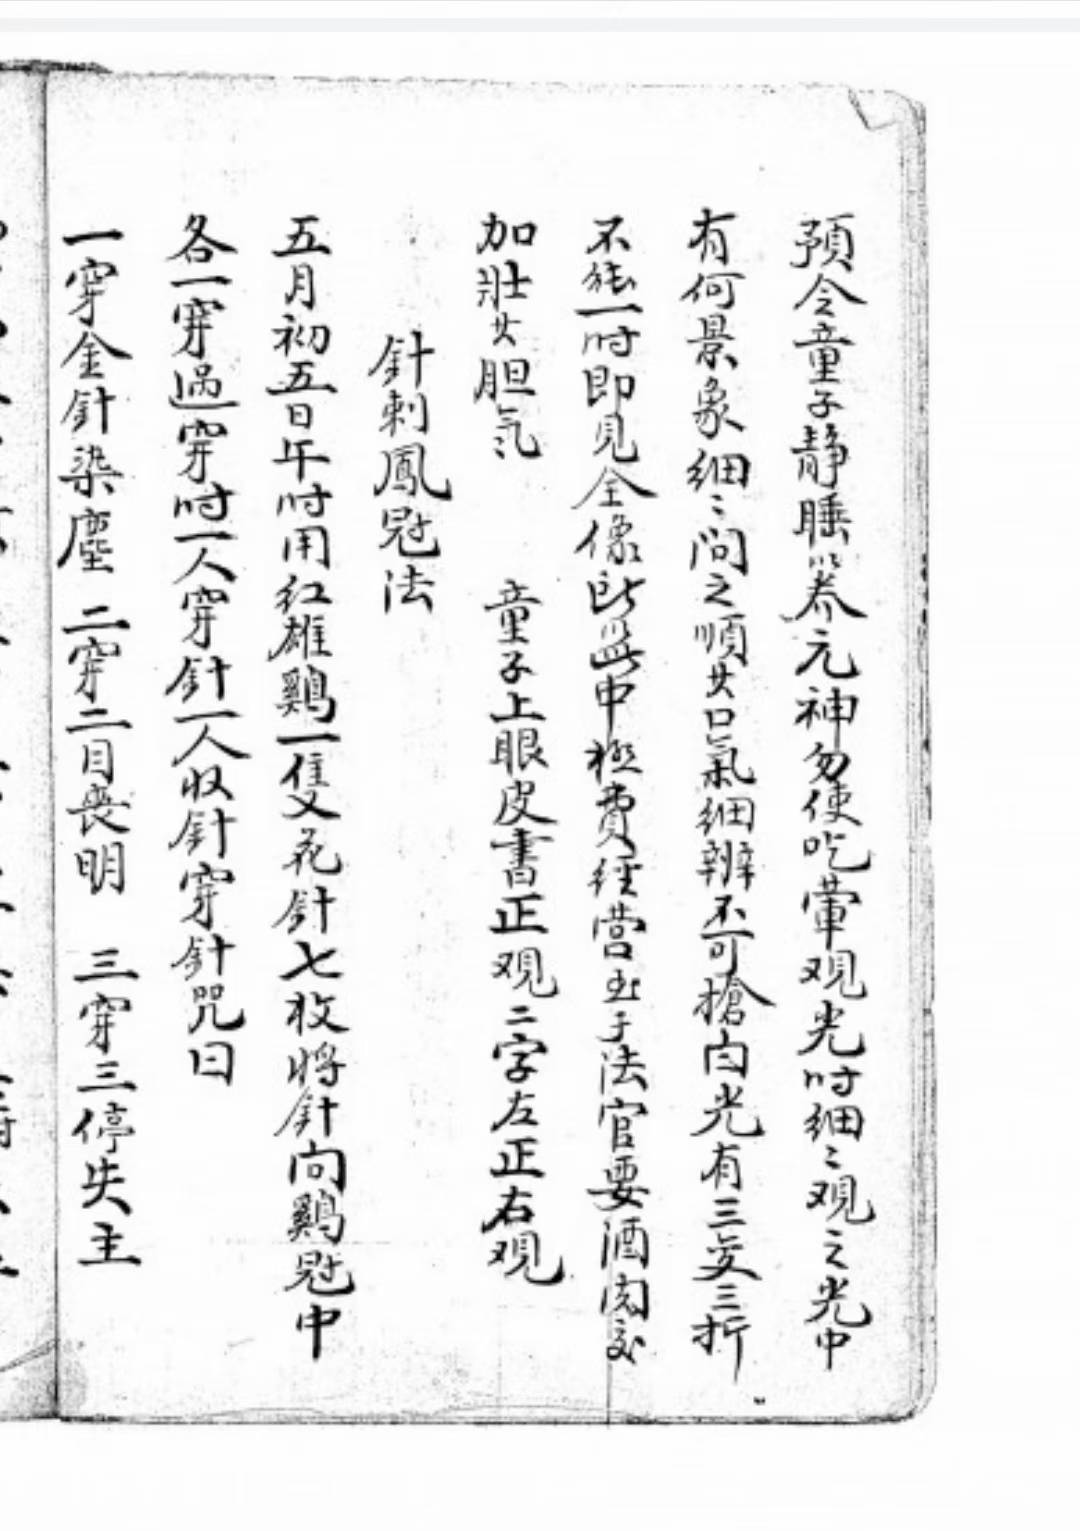 預令童子静睡以养元神勿使吃葷观光时細〻观之光中
有何景象細〻问之順其口氣細辨不可搶白光有三变三折
不能一时即見全像所以此中極费经营至于法官要酒肉
加壯其胆气 童子上眼皮書正观二字左正右观
針刺鳳冠法
五月初五日午时用红雄鷄一隻花針七枚將針向鷄冠中
各一穿過穿时一人穿針一人收針穿針咒曰
一穿金針染塵 二穿二目喪明 三穿三停失主